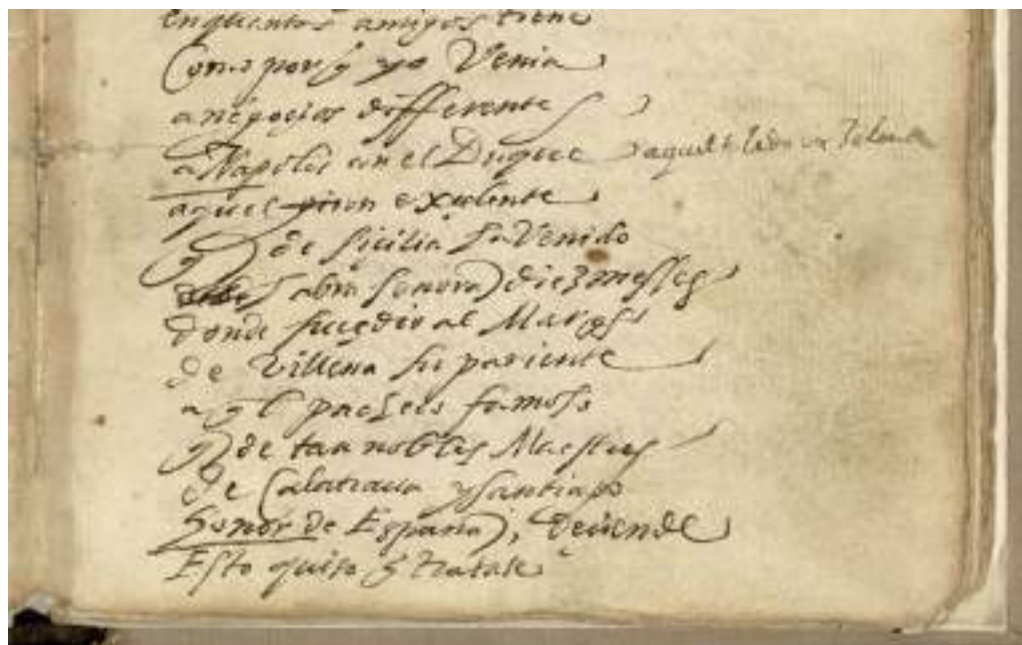 en quantos amigos tiene
Como por q̃ yo Venia
a negocios differentes
a Napoles con el Duque aquel
aquel exçelente
q̃ de Sicilia ha Venido
abra señora diez messes
donde suçedio al Marq̃s
de Villena su pariente
aq̃l pacheco famoso
q̃ de tan nobles Maestres
de Calatraua y santiago
honor de España, deçiende
Esto quiso q̃ tratase